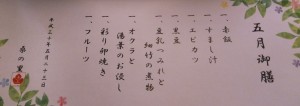 五月御膳
一、赤飯
一、すまし汁
一、エビカツ
一、黒豆
一、豆乳つみれと
細竹の煮物
一、オクラと
湯葉のお浸し
一、彩り卵焼き
一、フルーツ
平成三十年五月二十三日
春の里